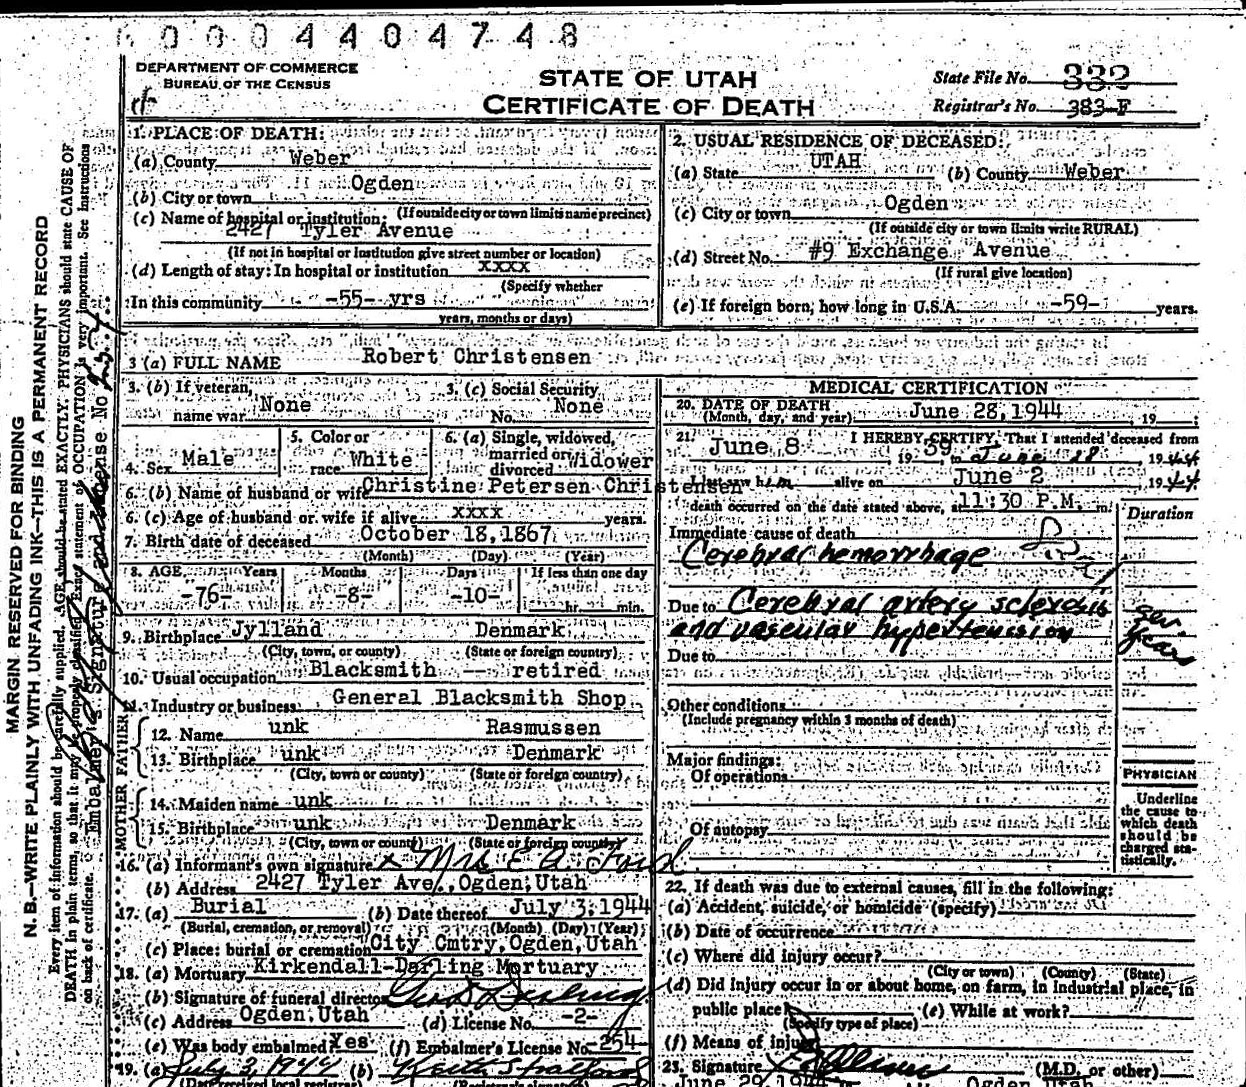 0 0 0 4 4 0 4 7 4 8
DEPARTMENT OF COMMERCE
BUREAU OF THE CENSUS
STATE OF UTAH
CERTIFICATE OF DEATH
State File No. 332
Registrar's No. 383-F
1. PLACE OF DEATH:
(a) County Weber
(b) City or town Ogden
(If outside city or town limits name precinct)
(c) Name of hospital or institution:
2427 Tyler Avenue
(If not in hospital or Institution give street number or location)
(d) Length of stay: In hospital or institution xxxx
(Specify whether
In this community -55- yrs
years, months or days)
2. USUAL RESIDENCE OF DECEASED:
(a) State UTAH (b) County Weber
(c) City or town Ogden
(If outside city or town limits write RURAL)
(d) Street No. #9 Exchange Avenue
(If rural give location)
(e) If foreign born, how long in U.S.A. -59- years.
3 (a) FULL NAME Robert Christensen
3. (b) If veteran, name war None
3. (c) Social Security No. None
4. Sex Male
5. Color or race White
6. (a) Single, widowed, married or divorced Widower
6. (b) Name of husband or wife Christine Petersen Christensen
6. (c) Age of husband or wife if alive xxxx years.
7. Birth date of deceased October 18, 1867
(Month) (Day) (Year)
8. AGE Years Months Days If less than one day
-76- -8- -10- hr. min.
9. Birthplace Jylland Denmark
(City, town, or county) (State or foreign country)
10. Usual occupation Blacksmith -- retired
11. Industry or business General Blacksmith Shop
FATHER
12. Name unk Rasmussen
13. Birthplace unk Denmark
(City, town or county) (State or foreign country)
MOTHER
14. Maiden name unk
15. Birthplace unk Denmark
(City, town or county) (State or foreign country)
16. (a) Informant's own signature x Mrs E A Ford
(b) Address 2427 Tyler Ave., Ogden, Utah
17. (a) Burial (b) Date thereof July 3, 1944
(Burial, cremation, or removal) (Month) (Day) (Year)
(c) Place: burial or cremation City Cmtry, Ogden, Utah
18. (a) Mortuary Kirkendall-Darling Mortuary
(b) Signature of funeral director
(c) Address Ogden, Utah (d) License No. -2-
(e) Was body embalmed Yes (f) Embalmer's License No. 254
19. (a) July 3, 1944 (b)
(Date received local registrar)
MEDICAL CERTIFICATION
20. DATE OF DEATH June 28, 1944, 19
(Month, day, and year)
21. I HEREBY CERTIFY, That I attended deceased from
June 8, 1939, to June 28, 1944
I last saw him alive on June 2, 1944
death occurred on the date stated above, at 11:30 P.M. m.
Duration
Immediate cause of death
Cerebral hemorrhage
Due to Cerebral artery sclerosis
and vascular hypertension
sev. years
Due to
Other conditions
(Include pregnancy within 3 months of death)
Major findings:
Of operations
Of autopsy
PHYSICIAN
Underline
the cause to
which death
should be
charged sta-
tistically.
22. If death was due to external causes, fill in the following:
(a) Accident, suicide, or homicide (specify)
(b) Date of occurrence
(c) Where did injury occur?
(City or town) (County) (State)
(d) Did injury occur in or about home, on farm, in industrial place, in
public place (e) While at work?
(Specify type of place)
(f) Means of injury
23. Signature (M.D. or other)
June 29, 1944 Ogden, Utah
MARGIN RESERVED FOR BINDING
N. B.—WRITE PLAINLY WITH UNFADING INK—THIS IS A PERMANENT RECORD
Every item of information should be carefully supplied. AGE should be stated EXACTLY. PHYSICIANS should state CAUSE OF
DEATH in plain terms, so that it may be properly classified. Exact statement of OCCUPATION is very important. See instructions
on back of certificate.
Embalmer's Signature and License No